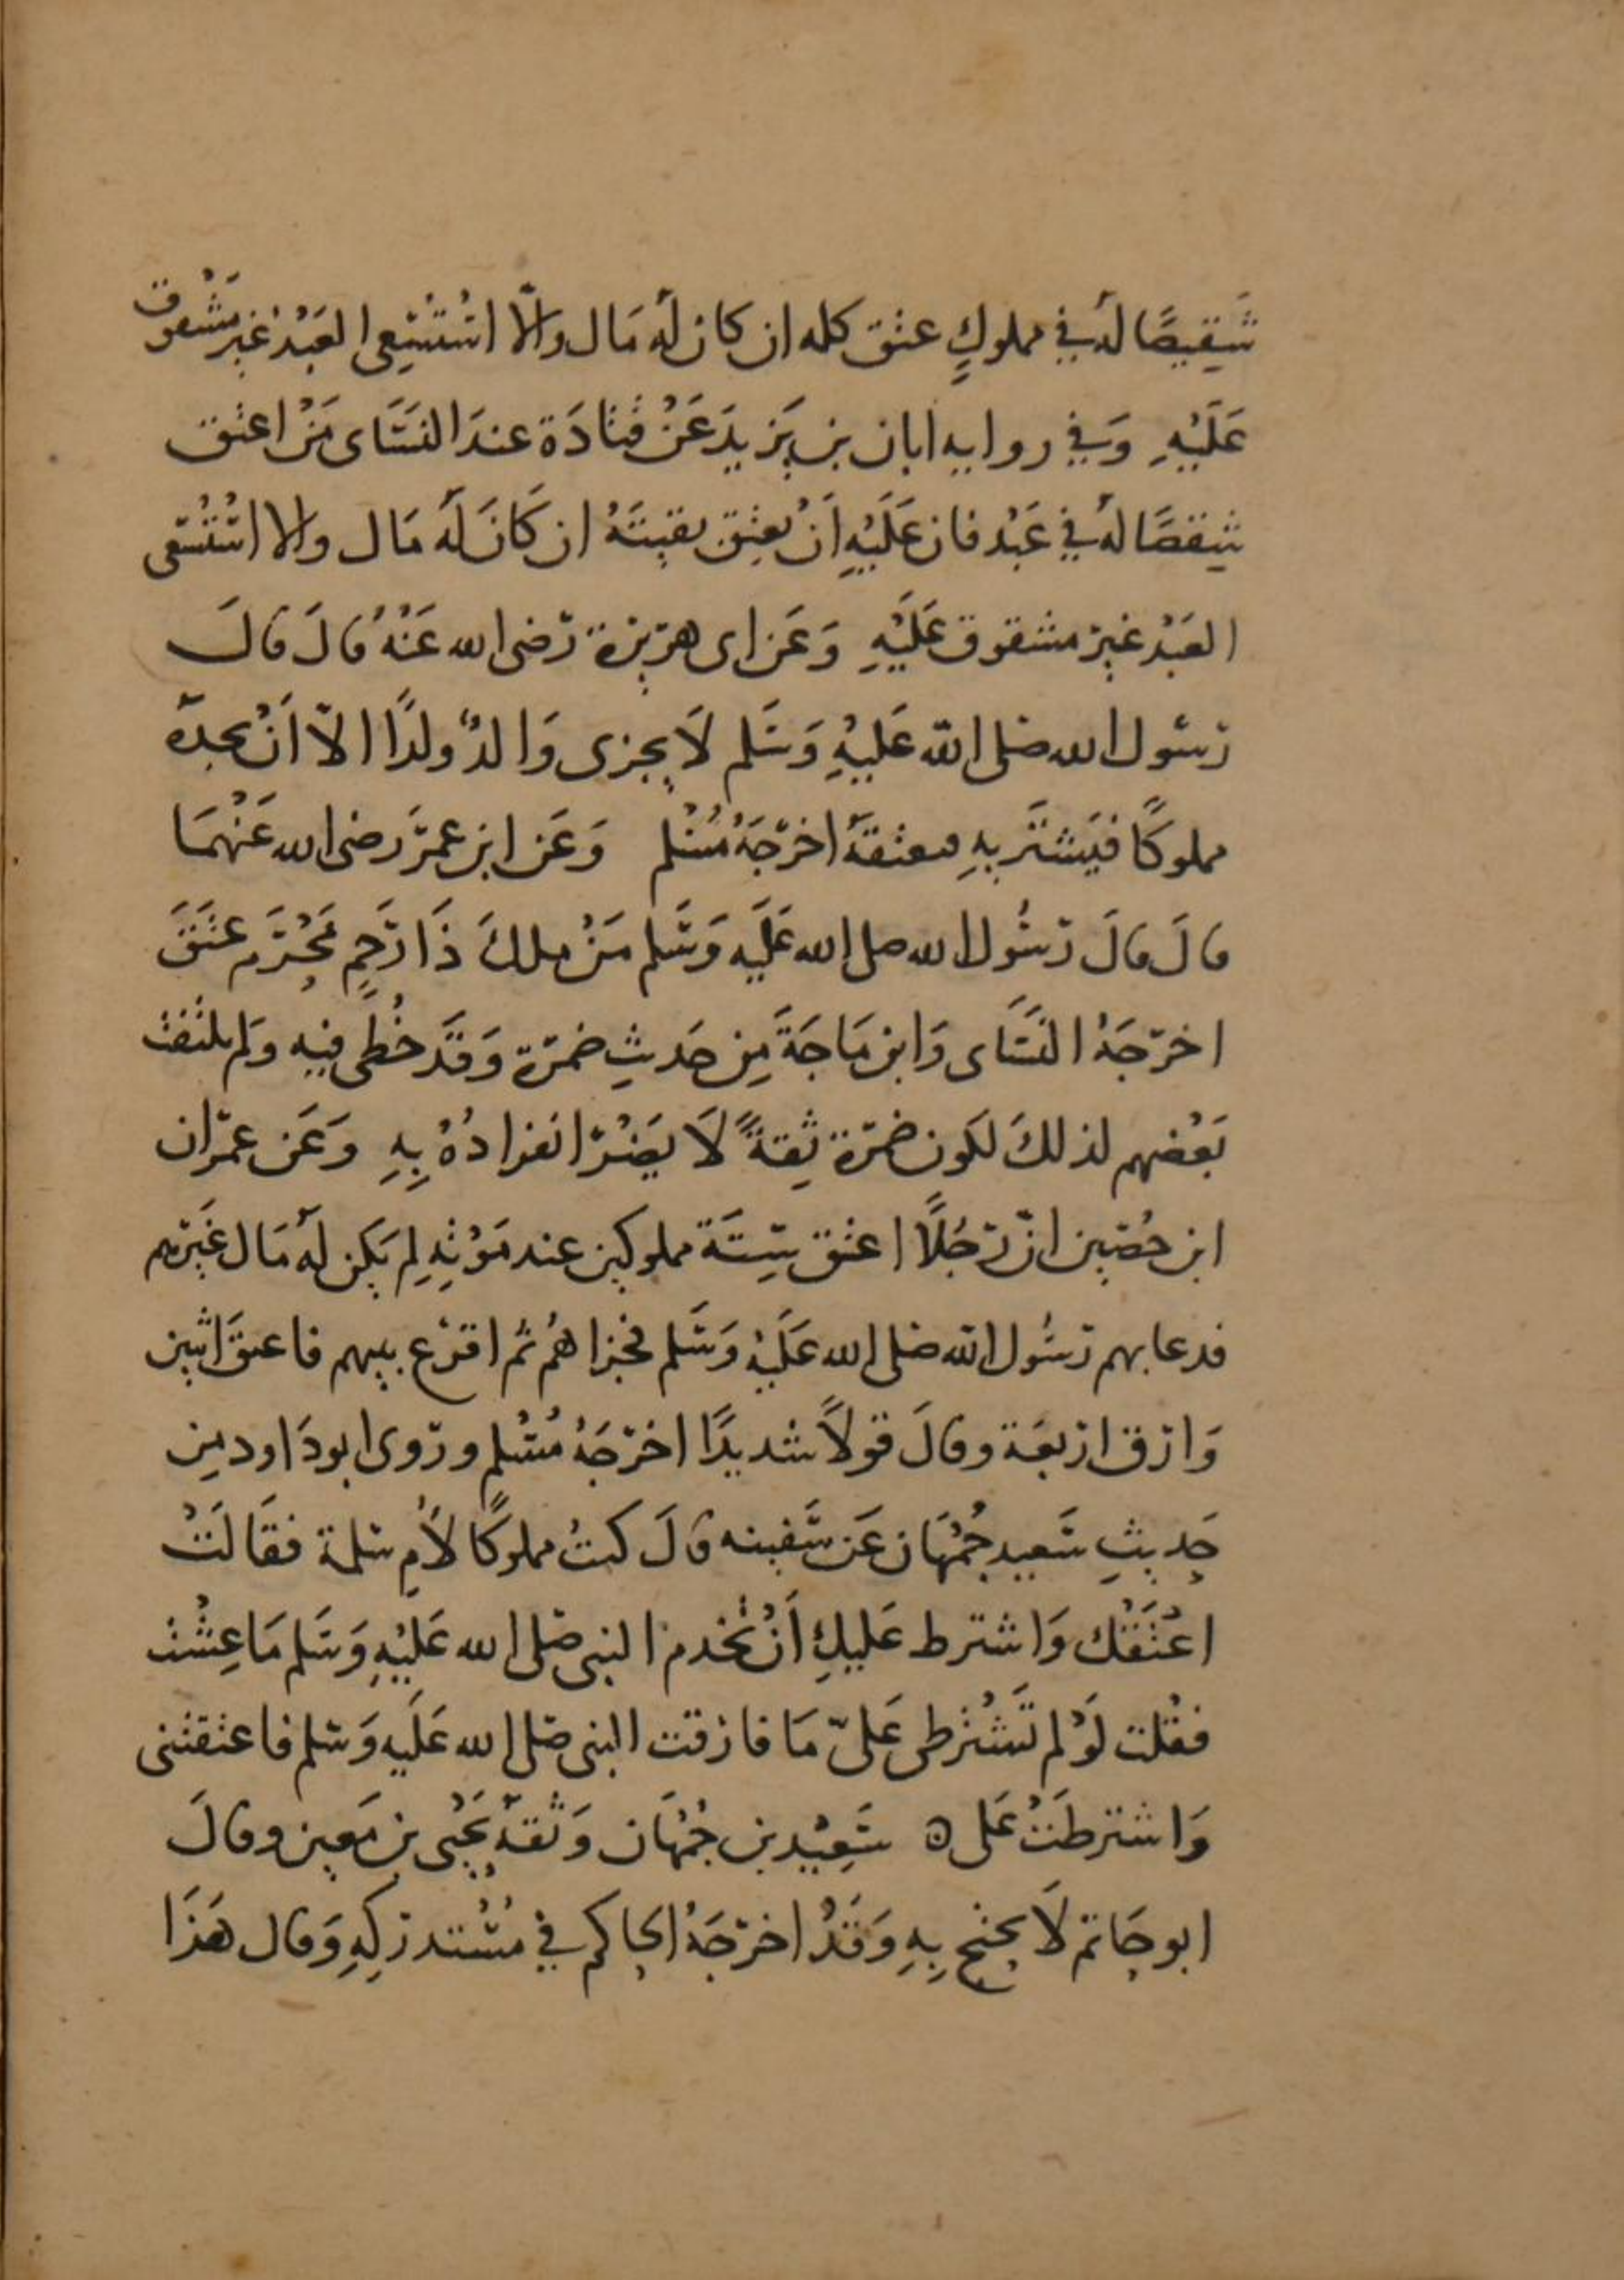 شَقِيصًا لهُ في مملوكٍ عتق كله ان كان لهُ مَال والّا اسْتُسْعِي العَبْدُ غير مَشْقوق
عَلَيْهِ وَفي روايه ابان بن يَزيدَ عَنْ قتادَة عندَ النسَاى مَنْ اعتق
شِقصًا لهُ في عَبْد فان عَلَيْهِ اَنْ يعتِق بقيتَهُ ان كَانَ لَهُ مَال والا استُسْعى
العَبْد غير مشقوق عَلَيْهِ وَعَن ابى هريرة رضى الله عَنْهُ قالَ قالَ
رسُول الله صلى الله عَليْهِ وَسَلم لَا يجزى وَالدٌ ولدًا الاّ اَنْ يجدهُ
مملوكًا فيَشترَيهِ فيعتقهُ اخرَجَهُ مُسْلم وَعَن ابن عمرَ رضى الله عَنْهمَا
قالَ قالَ رسُول الله صلى الله عَلَيه وَسَلم مَنْ ملكَ ذَا رَحِم مَحْرَم عتَقَ
اخرَجَهُ النسَاى وَابن مَاجَةَ مِن حَديثِ ضمرَة وَقَد خُطى فيه وَلم يلتفت
بَعْضهم لذلكَ لكون ضمرَة ثِقةً لَا يَضرّ انفرادُهُ بِهِ وَعَن عمرَان
ابن حُصَين انّ رَجُلًا اعتق سِتَة مملوكين عند مَوْتِهِ لم يَكن لهُ مَال غَيرَهم
فدعا بهم رسُول الله صلى الله عَلَيْهِ وَسَلم فجزاهُم ثم اقرَع بينهم فاعتقَ اثنين
وَارق اربعَة وقالَ قولًا شديدًا اخرَجَهُ مُسْلم وروى ابو دَاود مِن
حَديثِ سَعيد جُمْهَان عَن سَفينه قالَ كنتُ مملوكًا لأمِ سلمة فقَالَتْ
اعْتَقْتُك وَاشترط عَليكِ اَنْ تخدم النبى صَلى الله عَليْهِ وَسَلم مَا عِشْت
فقُلت لوْ لم تَشْتَرطى عَلىّ مَا فارقت النبى صَلى الله عَلَيهِ وَسَلم فاعتقتنى
وَاشترطَتْ عَلى ه سَعِيْد بن جُمْهَان وَثقهُ يَحْيى بن مَعين وقالَ
ابو حَاتم لَا يحتج بِهِ وَقَدْ اخرَجَهُ الحاكم في مُسْتدركِهِ وَقال هَذَا